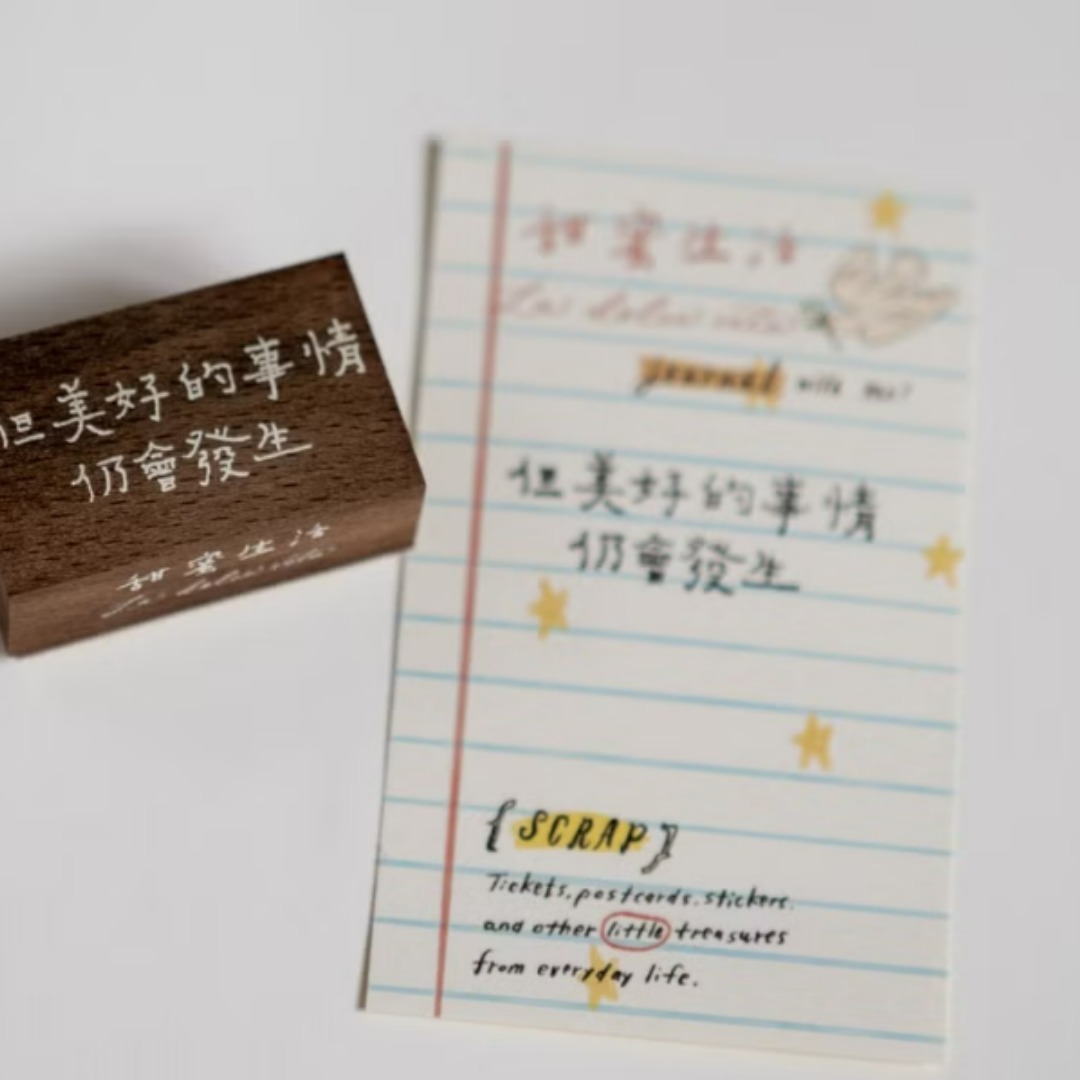 但美好的事情
仍會發生
甜蜜生活
La dolce vita
甜蜜生活
La dolce vita
journal with me!
但美好的事情
仍會發生
{SCRAP}
Tickets, postcards, stickers.
and other little treasures
from everyday life.